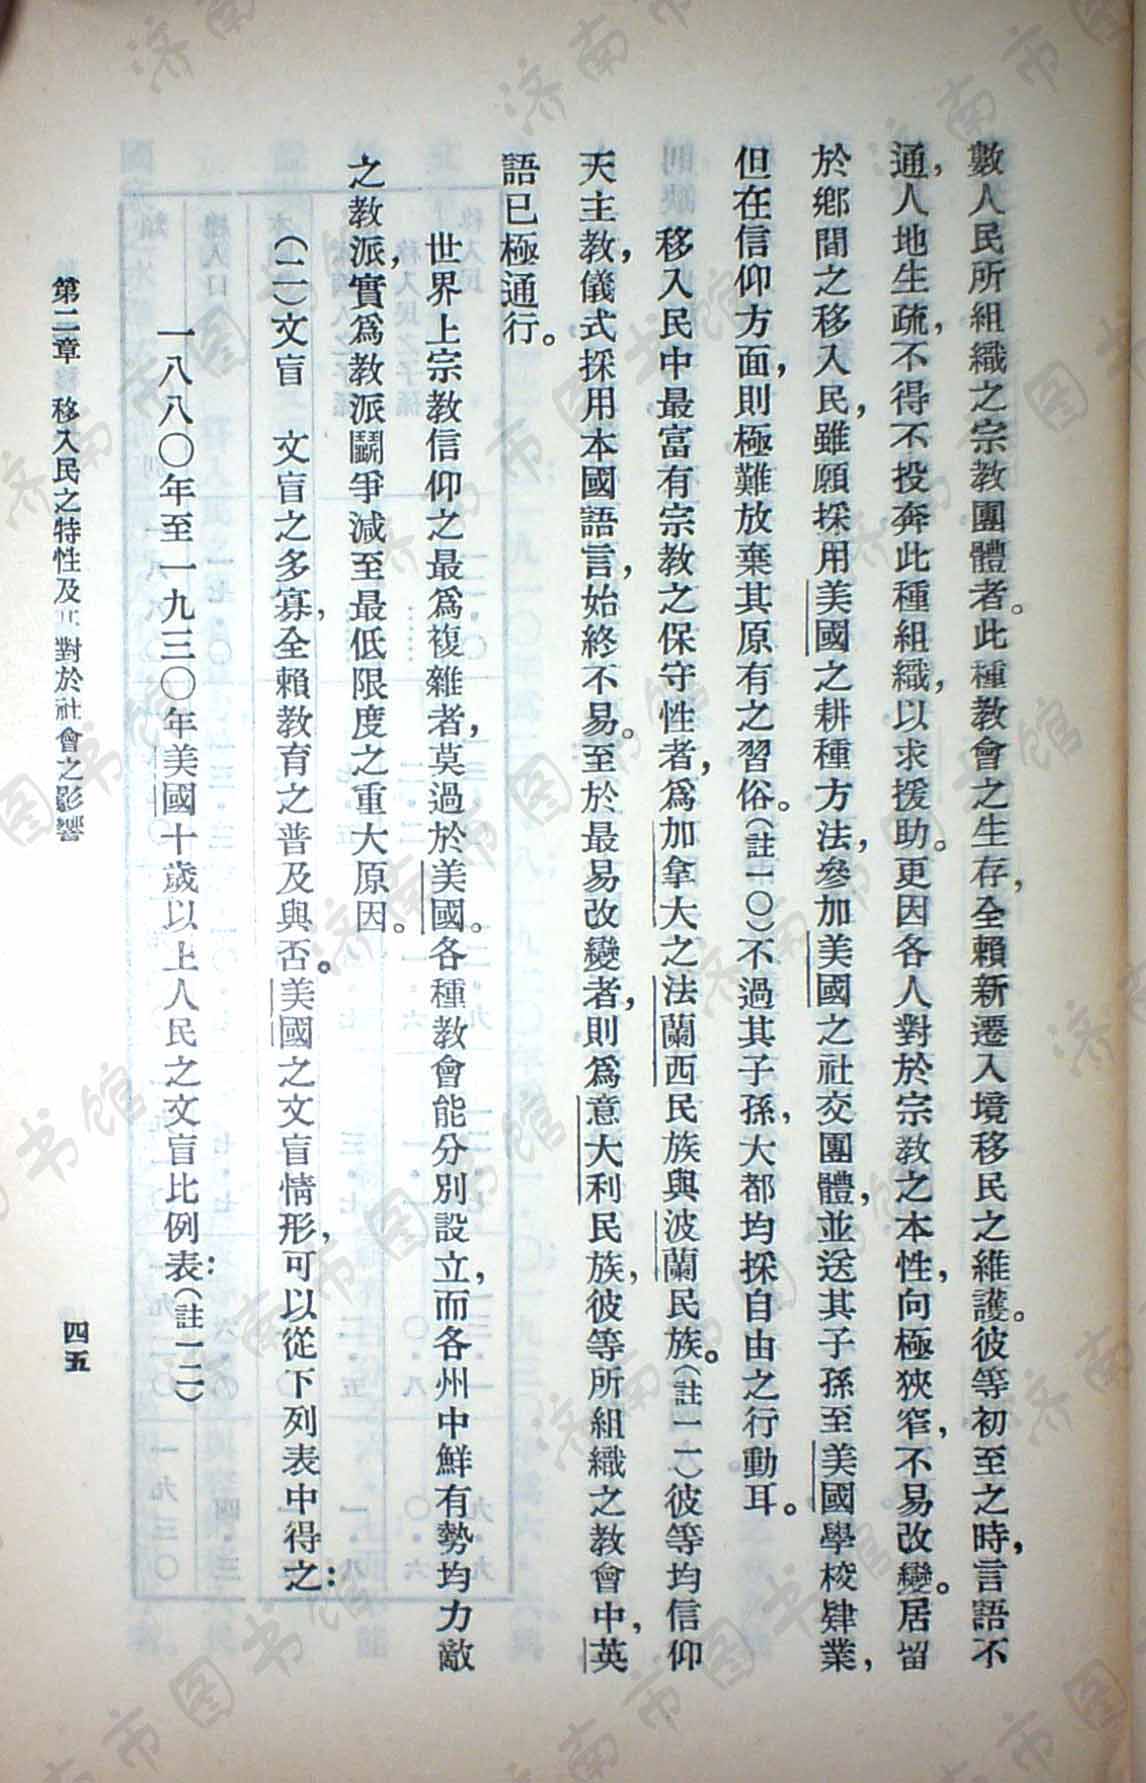 數人民所組織之宗教團體者。此種教會之生存，全賴新遷入境移民之維護。彼等初至之時，言語不
通，人地生疏，不得不投奔此種組織，以求援助。更因各人對於宗教之本性，向極狹窄，不易改變。居留
於鄉間之移入民，雖願採用美國之耕種方法，參加美國之社交團體，並送其子孫至美國學校肄業，
但在信仰方面，則極難放棄其原有之習俗。（註一〇）不過其子孫，大都均採自由之行動耳。
移入民中最富有宗教之保守性者，爲加拿大之法蘭西民族與波蘭民族。（註一一）彼等均信仰
天主教，儀式採用本國語言，始終不易。至於最易改變者，則爲意大利民族，彼等所組織之教會中，英
語已極通行。
世界上宗教信仰之最爲複雜者，莫過於美國。各種教會能分別設立，而各州中鮮有勢均力敵
之教派，實爲教派鬭爭減至最低限度之重大原因。
（二）文盲　文盲之多寡，全賴教育之普及與否。美國之文盲情形，可以從下列表中得之：
一八八〇年至一九三〇年美國十歲以上人民之文盲比例表：（註一二）
第二章　移入民之特性及其對於社會之影響
四五
济南市图书馆